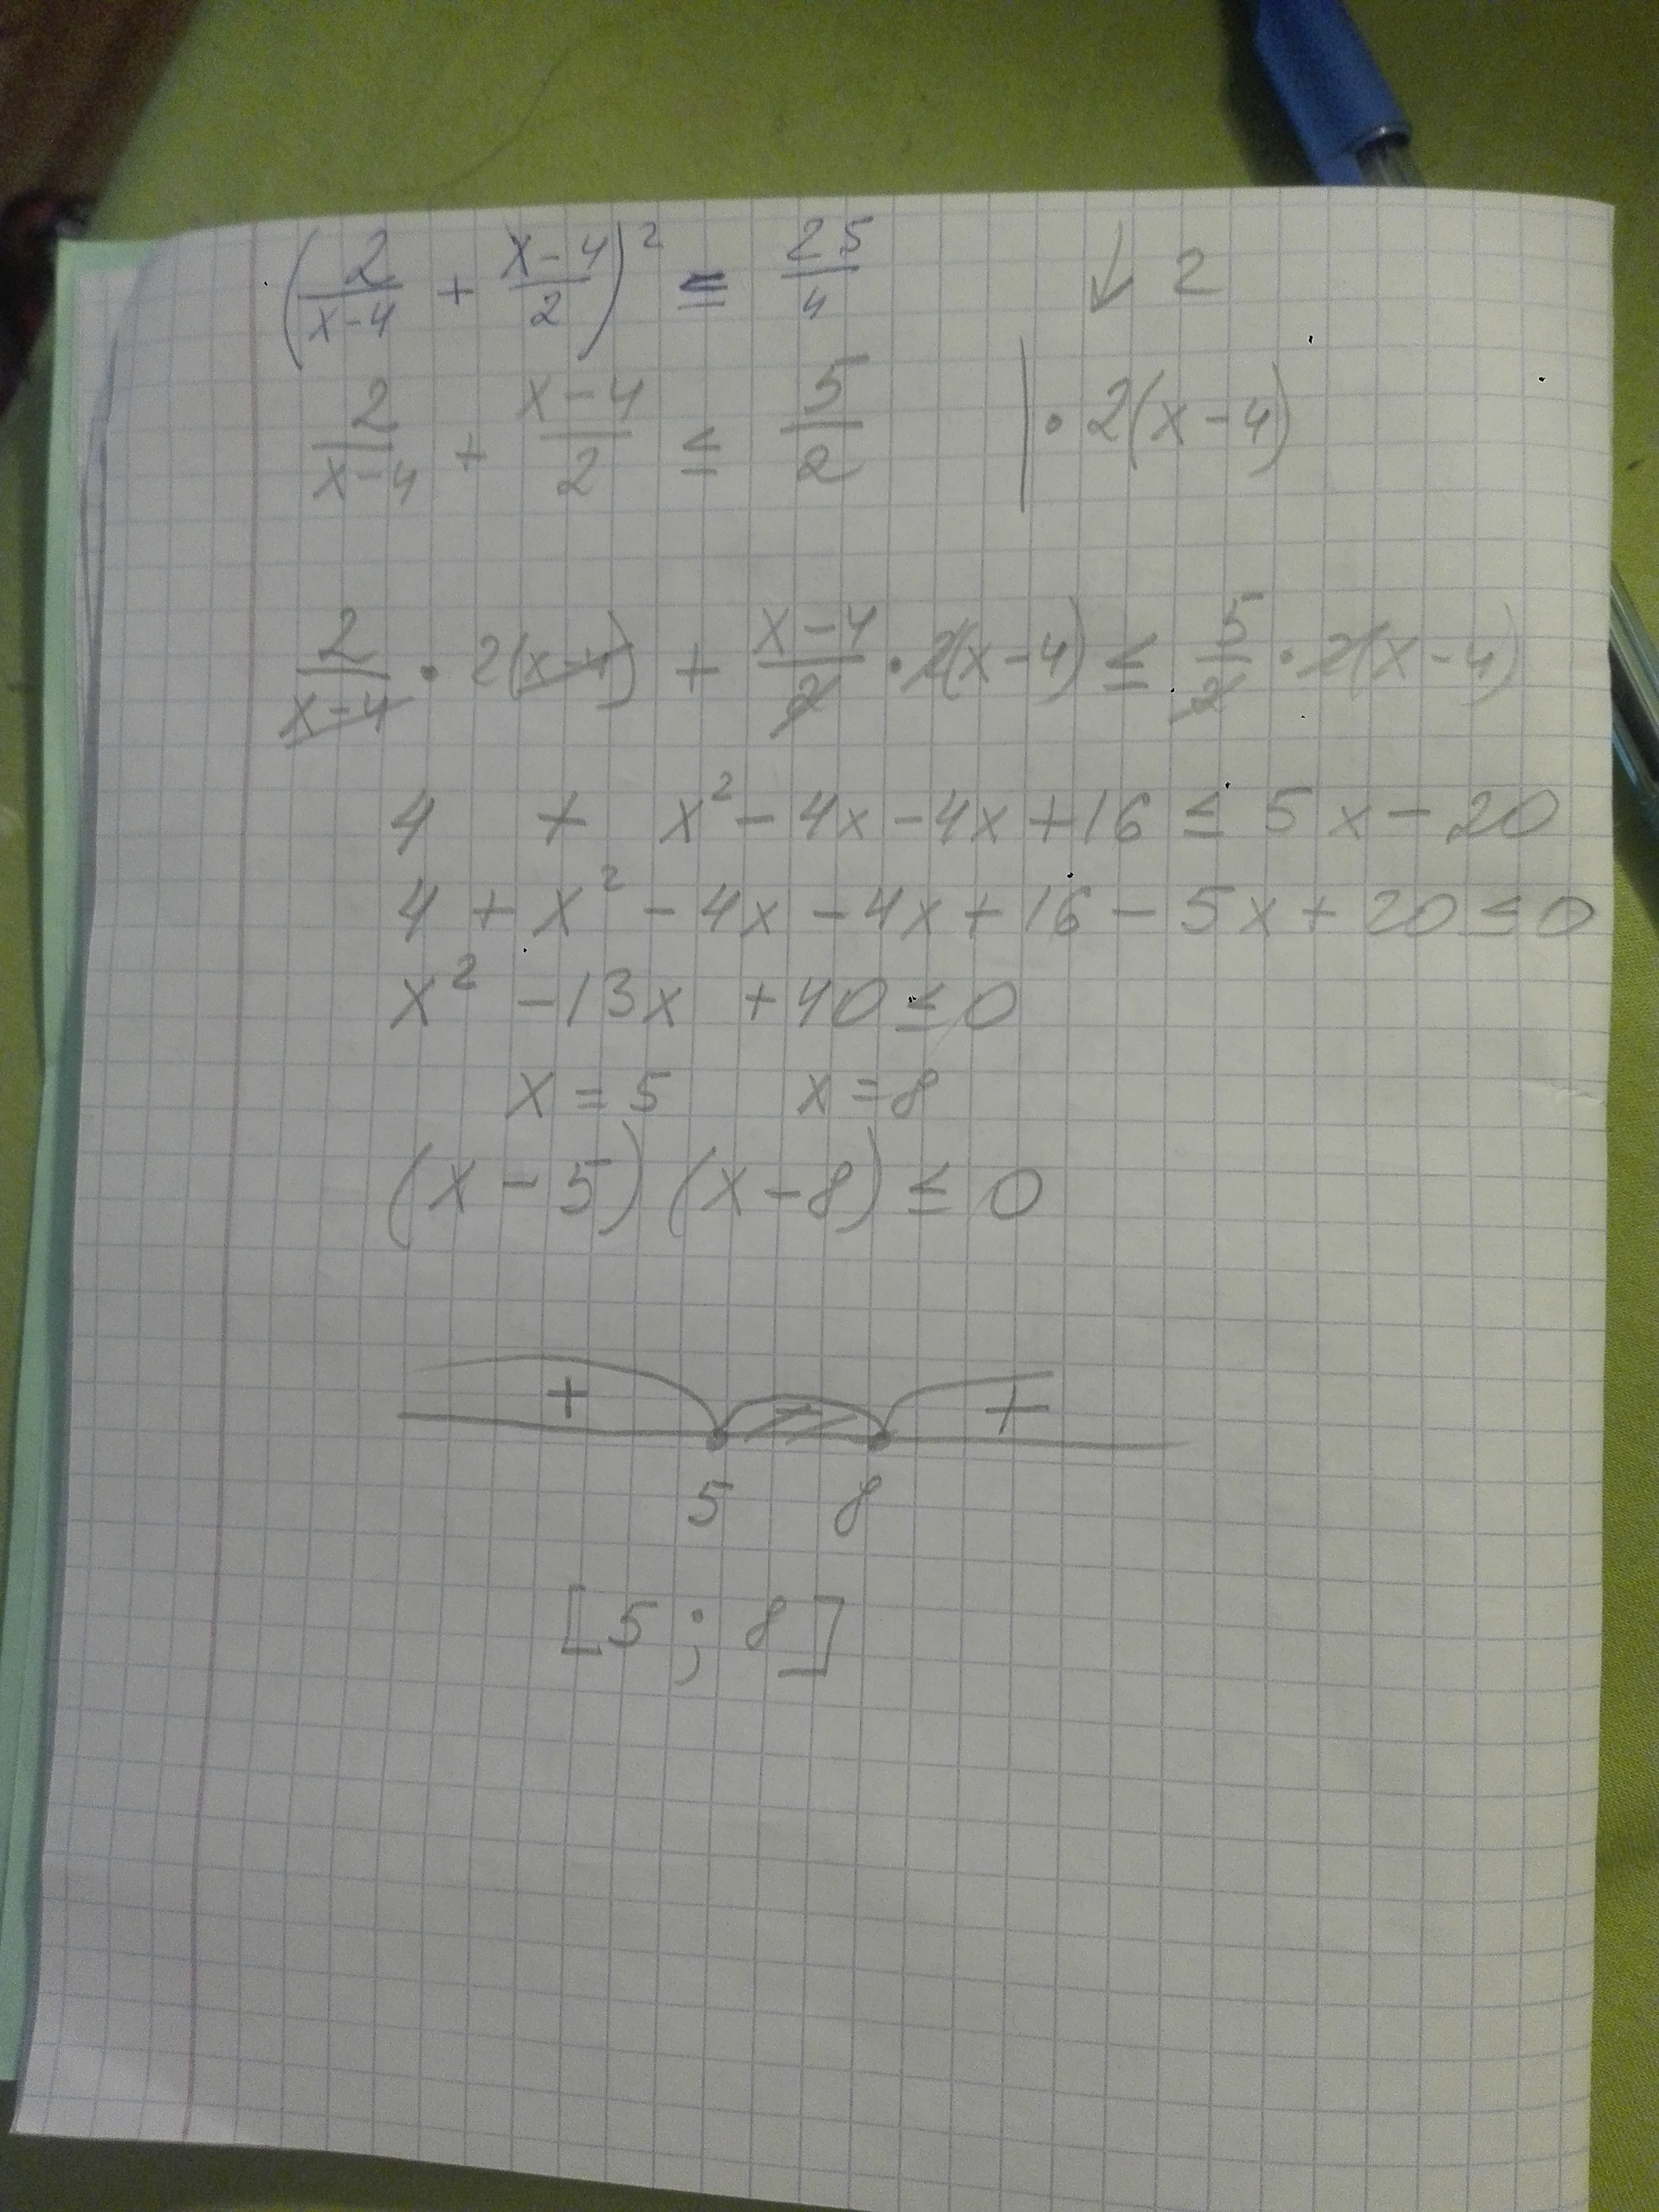 (2/(x-4) + (x-4)/2)² ≤ 25/4 ↓ 2
2/(x-4) + (x-4)/2 ≤ 5/2 | · 2(x-4)
2/(x-4) · 2(x-4) + (x-4)/2 · 2(x-4) ≤ 5/2 · 2(x-4)
4 + x² - 4x - 4x + 16 ≤ 5x - 20
4 + x² - 4x - 4x + 16 - 5x + 20 ≤ 0
x² - 13x + 40 ≤ 0
x = 5 x = 8
(x - 5) (x - 8) ≤ 0
+ - +
5 8
[5 ; 8]